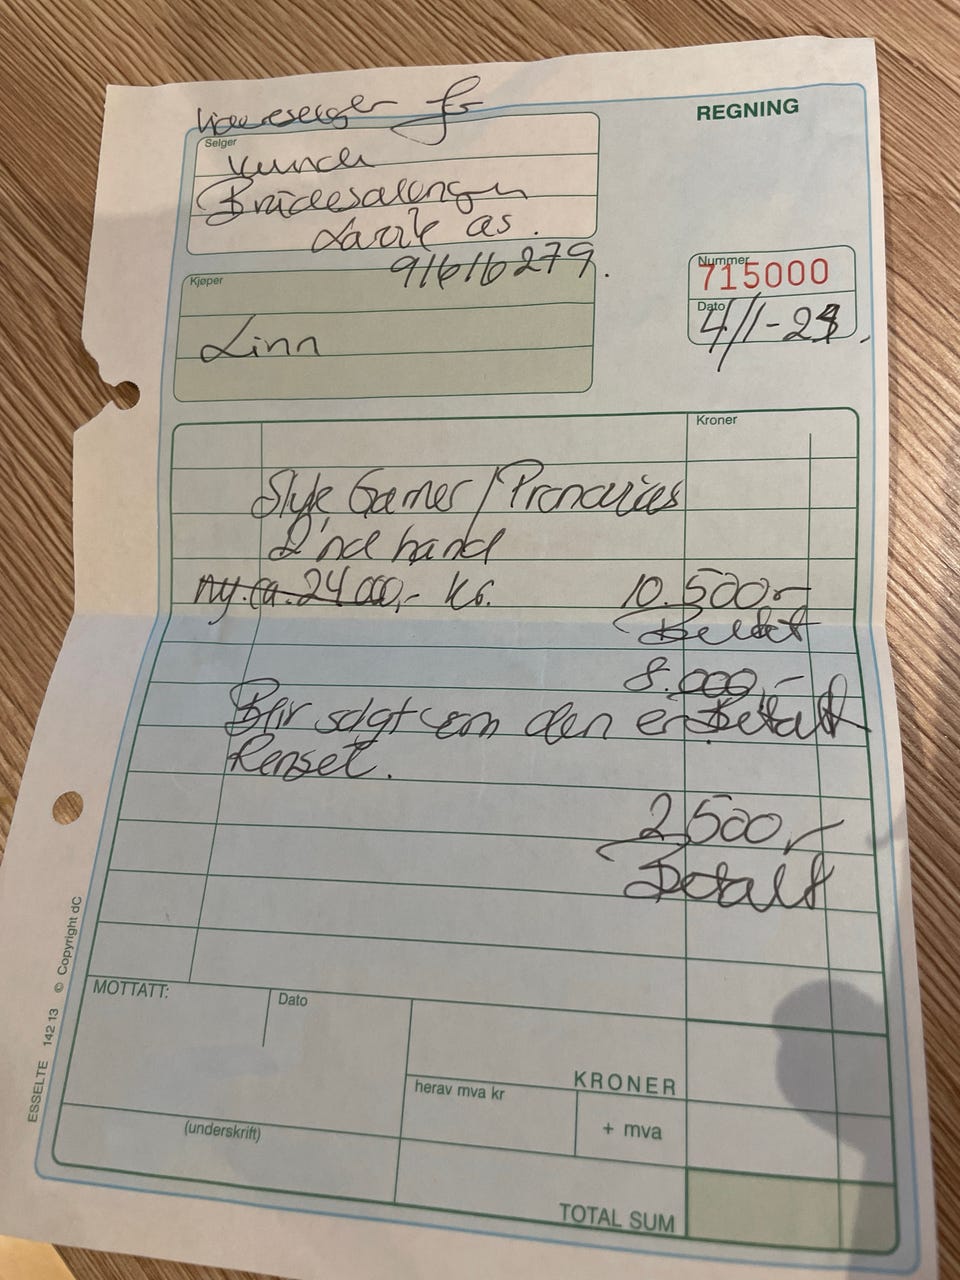 REGNING
Videreselger for
Selger
kunde
Brudesalongen
Larvik as.
91616279.
Kjøper
Linn
Nummer
715000
Dato
4/1-23.
Kroner
Style Gamer / Pronovias
2'nd hand
ny. ca. 24 000,- kr. 10.500,-
8.000,-
Blir solgt som den er Betalt
Renset.
2.500,-
Betalt
MOTTATT:
Dato
(underskrift)
KRONER
herav mva kr
+ mva
TOTAL SUM
ESSELTE 142 13 © Copyright dC